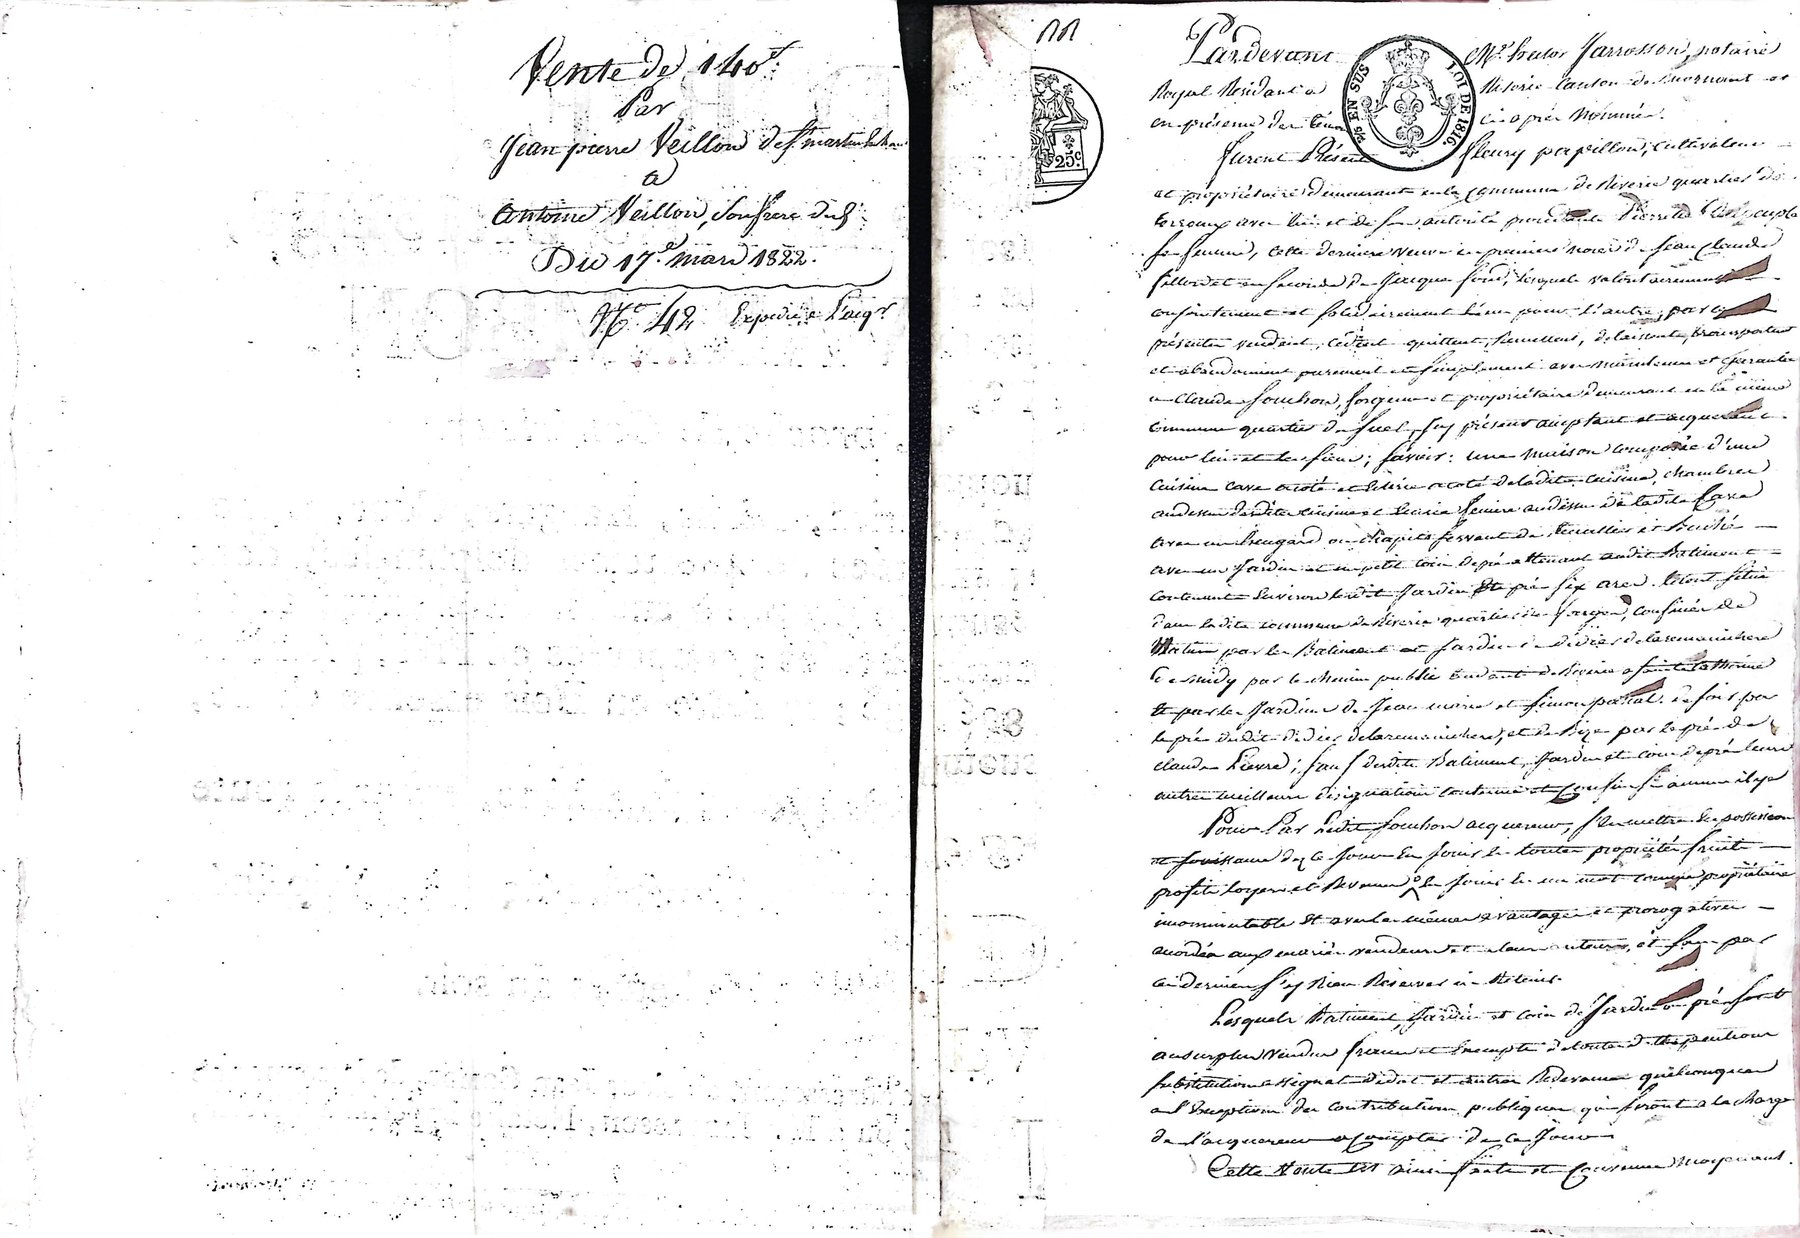 Vente de 140f.
Par
Jean pierre Veillon de St martin
a
Antoine Veillon, Son frere dud.
Du 17e. mars 1822.
No. 42 Expedié a L'acqr.
Pardevant Me. hector Jarrosson, notaire
Royal Résidant a Riverie Canton de mornant et
en présence des témoins ci après Nommés.
25c.
EN SUS
LOI DE 1816
furent Présents fleury papillon, cultivateur
et propriétaire demeurant en la Commune de Riverie quartier de
et de son autorité procédante Pierrette
sa femme, cette derniere veuve en premiere noces de Jean Claude
et en seconde de Jacque lesquels volontairement
conjointement et solidairement l'un pour l'autre, par ces
présentes vendent, cèdent quittent, Remettent, délaissent, transportent
et abandonnent purement et simplement avec maintenue et Garantie
a Claude Souchon, forgeur et propriétaire demeurant en la même
commune quartier de présent acceptant et acquerant
pour lui et les siens; savoir: une maison composée d'une
Cuisine cave a coté et Ecurie a coté de ladite cuisine, chambres
audessus desdites cuisine et Ecurie feniere audessus de ladite Cave
avec un hengard ou chapits servant de
avec un Jardin et un petit coin de pré attenant audit Batiment
contenant Environ ledit Jardin et pré six ares. le tout situé
dans ladite commune de Riverie quartier de confinés de
Matin par les Batiment et Jardin de didier
de midy par le chemin public tendant de Riverie a sainte Catherine
et par les Jardins de Jean marie et Simon de soir par
le pré dudit didier et de Bize par le pré de
claude sauf desdits Batiment, Jardin et coin de pré leurs
autres meilleure désignation contenue et Confins si aucun il y a
Pour Par Ledit Souchon acquereur, s'en mettre en possession
et Jouissance dez ce Jour En Jouir En toutes propriétés fruit
profits loyers et Revenus En Jouir En un mot comme propriétaire
incommutable et avec les mêmes avantages et prerogatives
accordés aux mariés vendeurs et a leurs auteurs, et sans par
ces derniers s'y Rien Réserver ni Retenir.
Lesquels Batiment, Jardin et coin de Jardin ou pré sont
au surplus vendus francs et Exempts de toutes
substitutions et autres Redevances quelconques
a l'Exception des contributions publiques qui seront a la charge
de l'acquereur a Compter de ce Jour
Cette Vente Est ainsi faite et Convenue moyennant